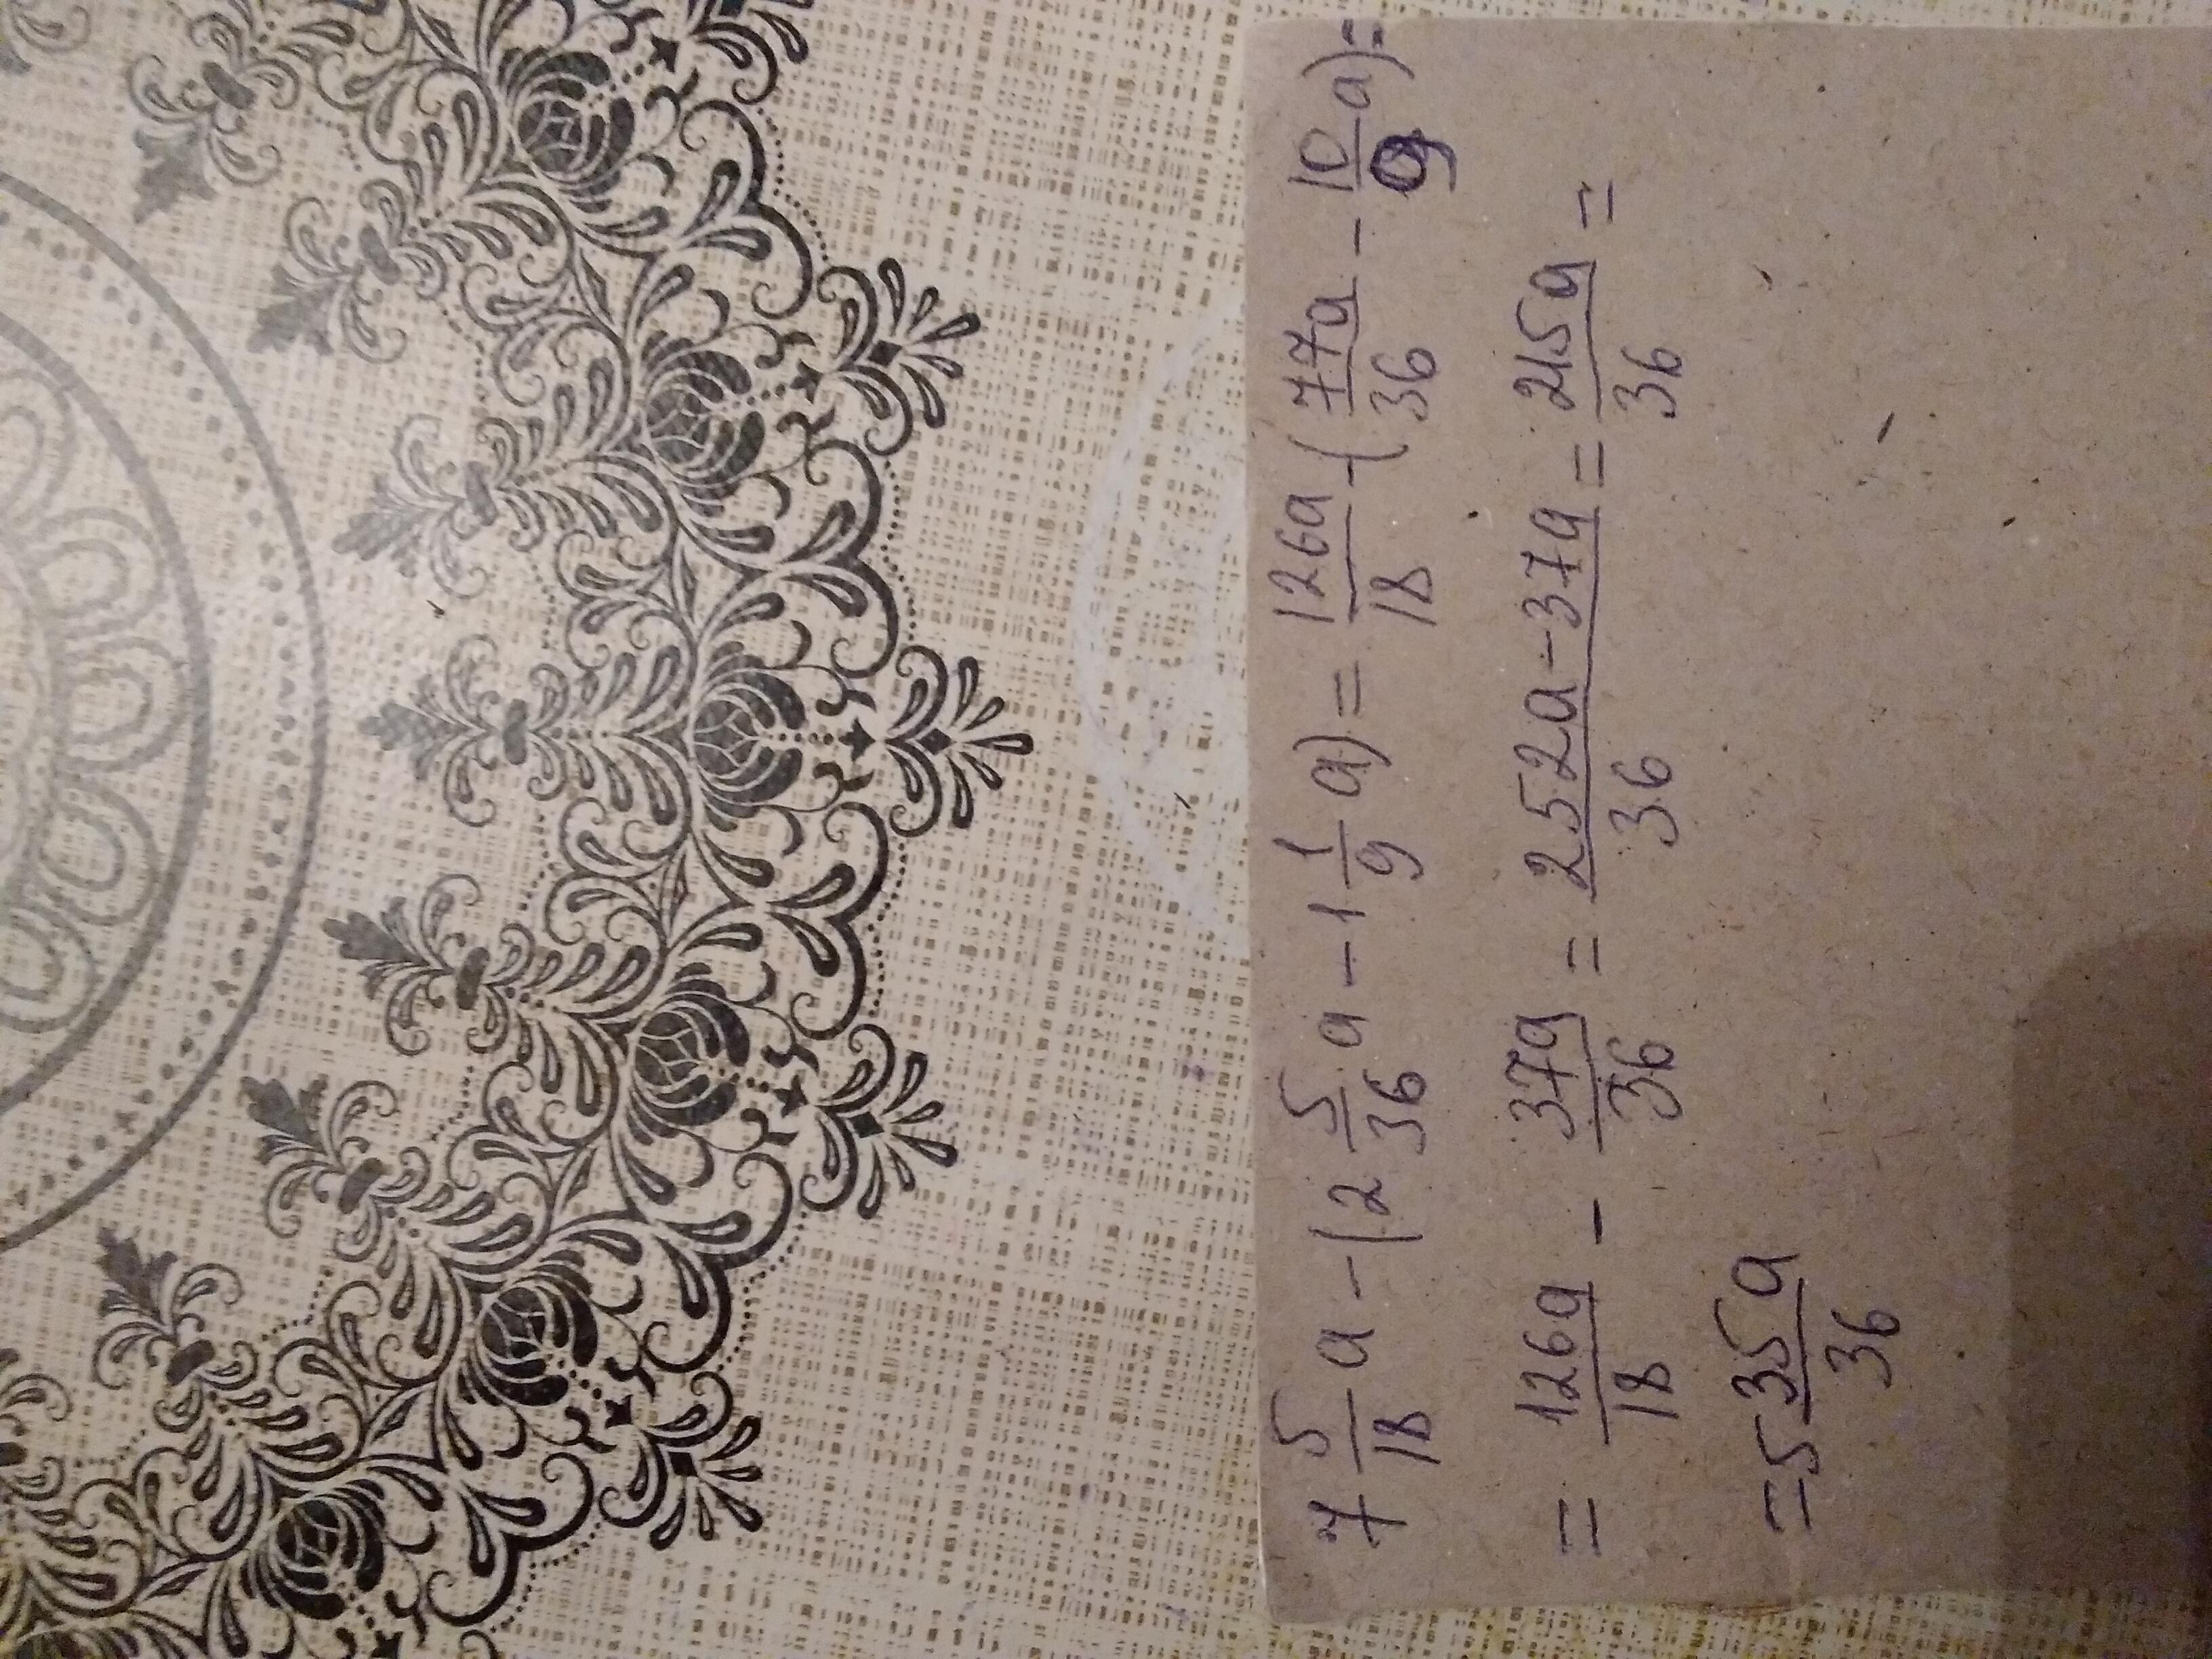 7 5/18 a - (2 5/36 a - 1 1/9 a) = 126a/18 - (77a/36 - 10/9 a) =
= 126a/18 - 37a/36 = 252a-37a/36 = 215a/36 =
= 5 35a/36